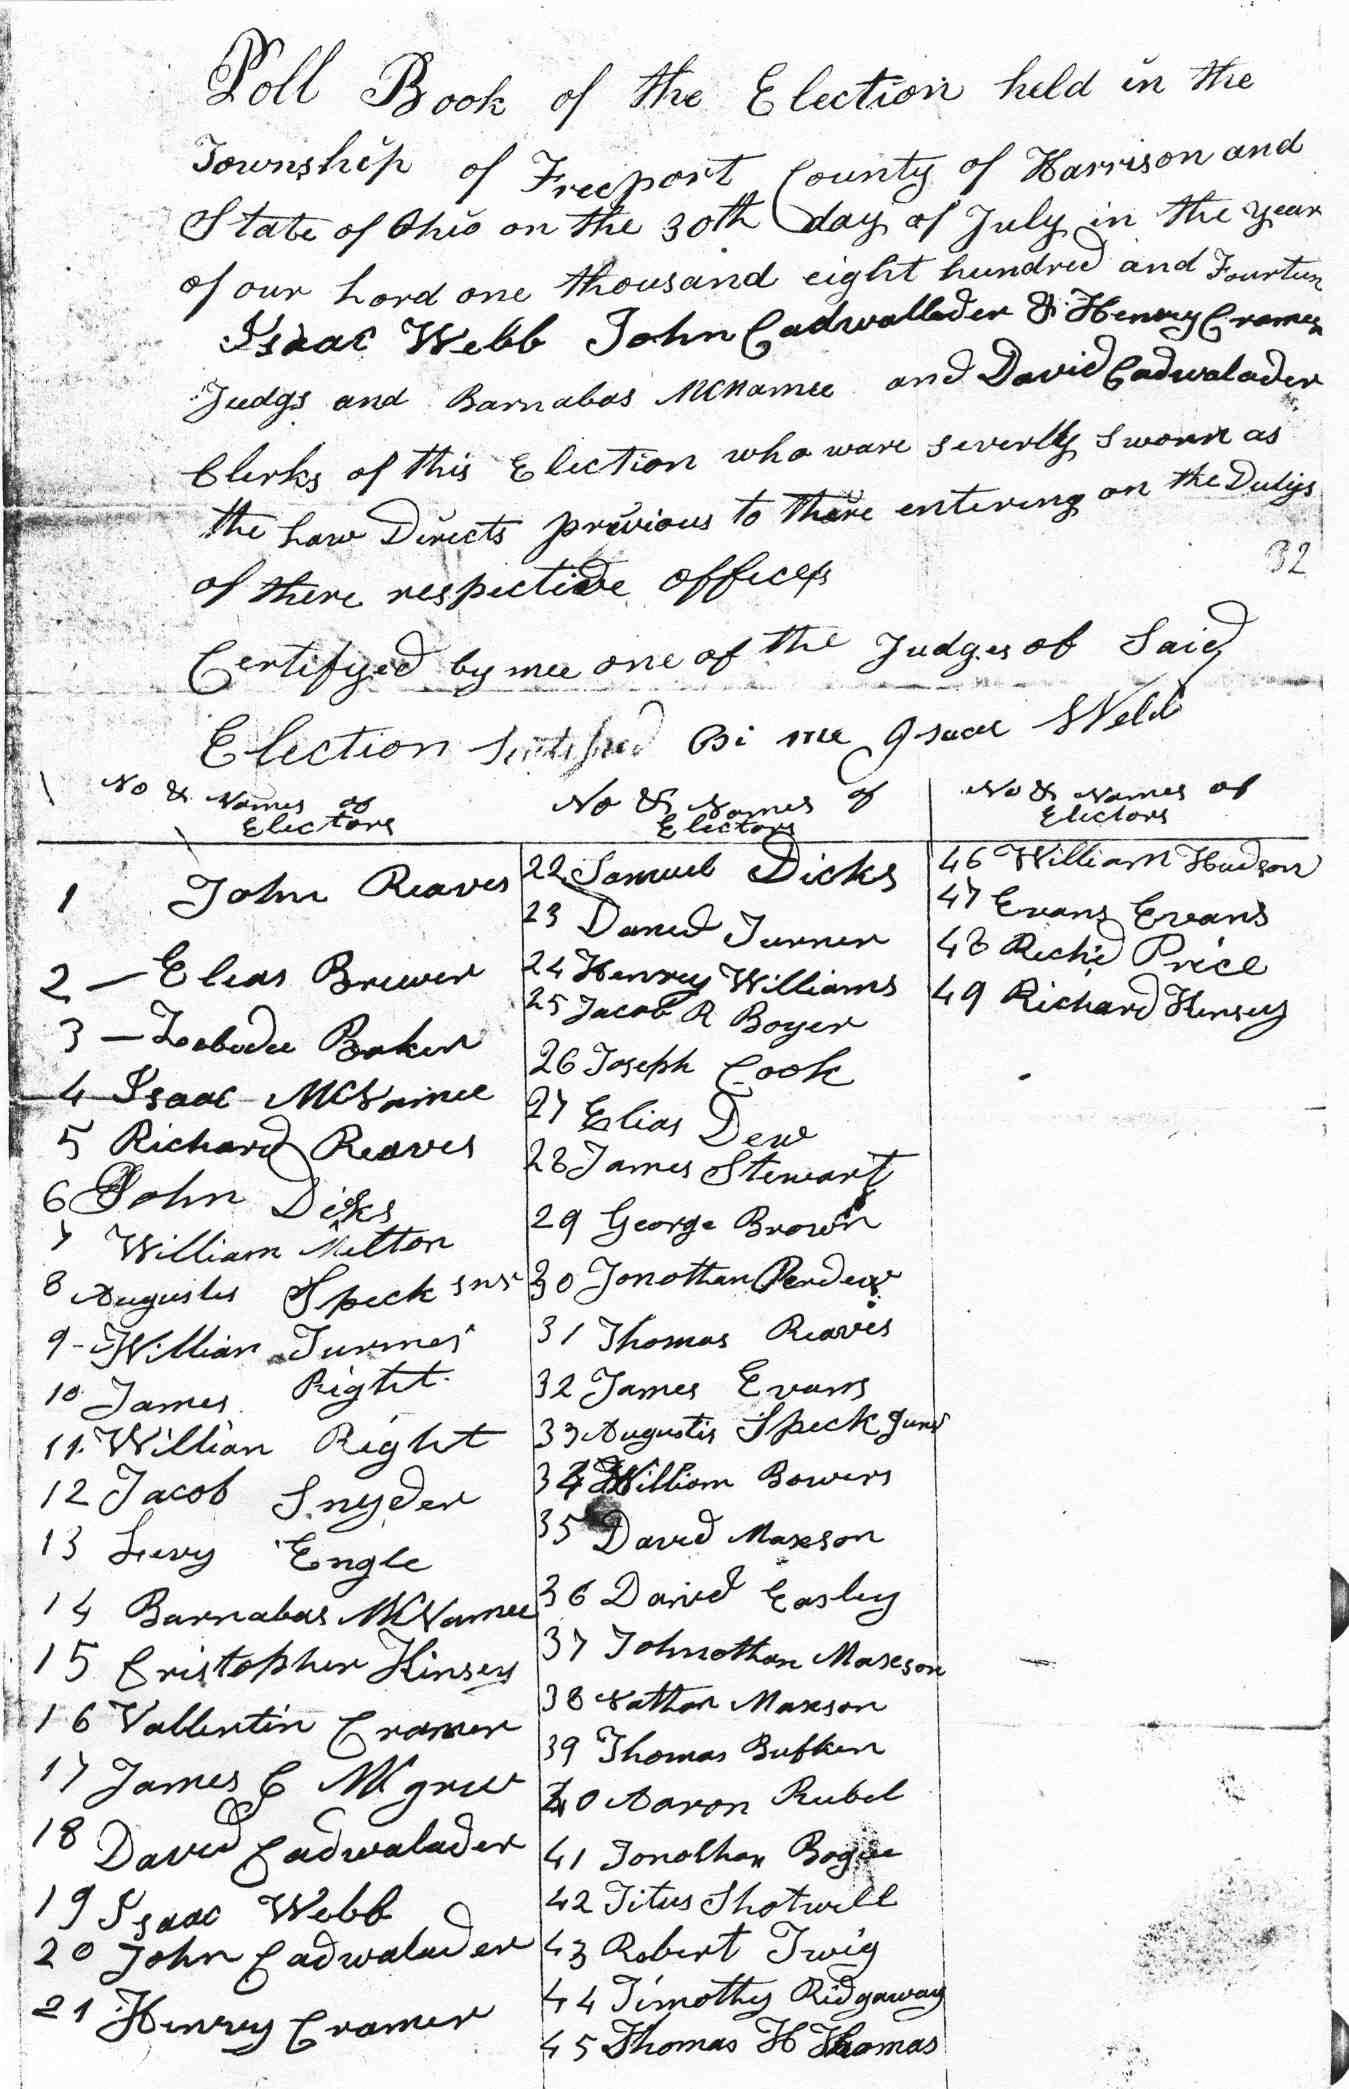 Poll Book of the Election held in the
Township of Freeport County of Harrison and
State of Ohio on the 30th day of July in the year
of our Lord one thousand eight hundred and Fourteen
Isaac Webb John Cadwallader & Henry Cramer
Judgs and Barnabas McNamee and David Cadwalader
Clerks of this Election who ware severlly sworn as
the Law Directs previous to thare entering on the Dutys
of there respective offices
32
Certifyed by mee one of the Judges of Said
Election Bi me Isaac Webb
No & Names of
Electors
1 John Reaves
2 — Elias Brewer
3 — Zebedee Baker
4 Isaac McNamee
5 Richard Reaves
6 John Dicks
7 William Melton
8 Augustes Speck snr
9 - William Turner
10 James Right
11 William Right
12 Jacob Snyder
13 Levy Engle
14 Barnabas McNamee
15 Cristopher Kinsey
16 Vallentin Cramer
17 James C McGrew
18 David Cadwalader
19 Isaac Webb
20 John Cadwalader
21 Henry Cramer
No & Names of
Electors
22 Samuel Dicks
23 David Turner
24 Henrey Williams
25 Jacob R Boyer
26 Joseph Cook
27 Elias Dew
28 James Stewart
29 George Brown
30 Jonothan Perdew
31 Thomas Reaves
32 James Evans
33 Augustis Speck Junr
34 William Bowers
35 David Maxson
36 David Easley
37 Johnothan Maxson
38 Nathan Maxson
39 Thomas Bufken
40 Aaron Rubel
41 Jonathan Bogue
42 Titus Shotwell
43 Robert Twig
44 Timothy Ridgaway
45 Thomas H Thomas
No & Names of
Electors
46 William Hudson
47 Evans Evans
48 Rich'd Price
49 Richard Kinsey